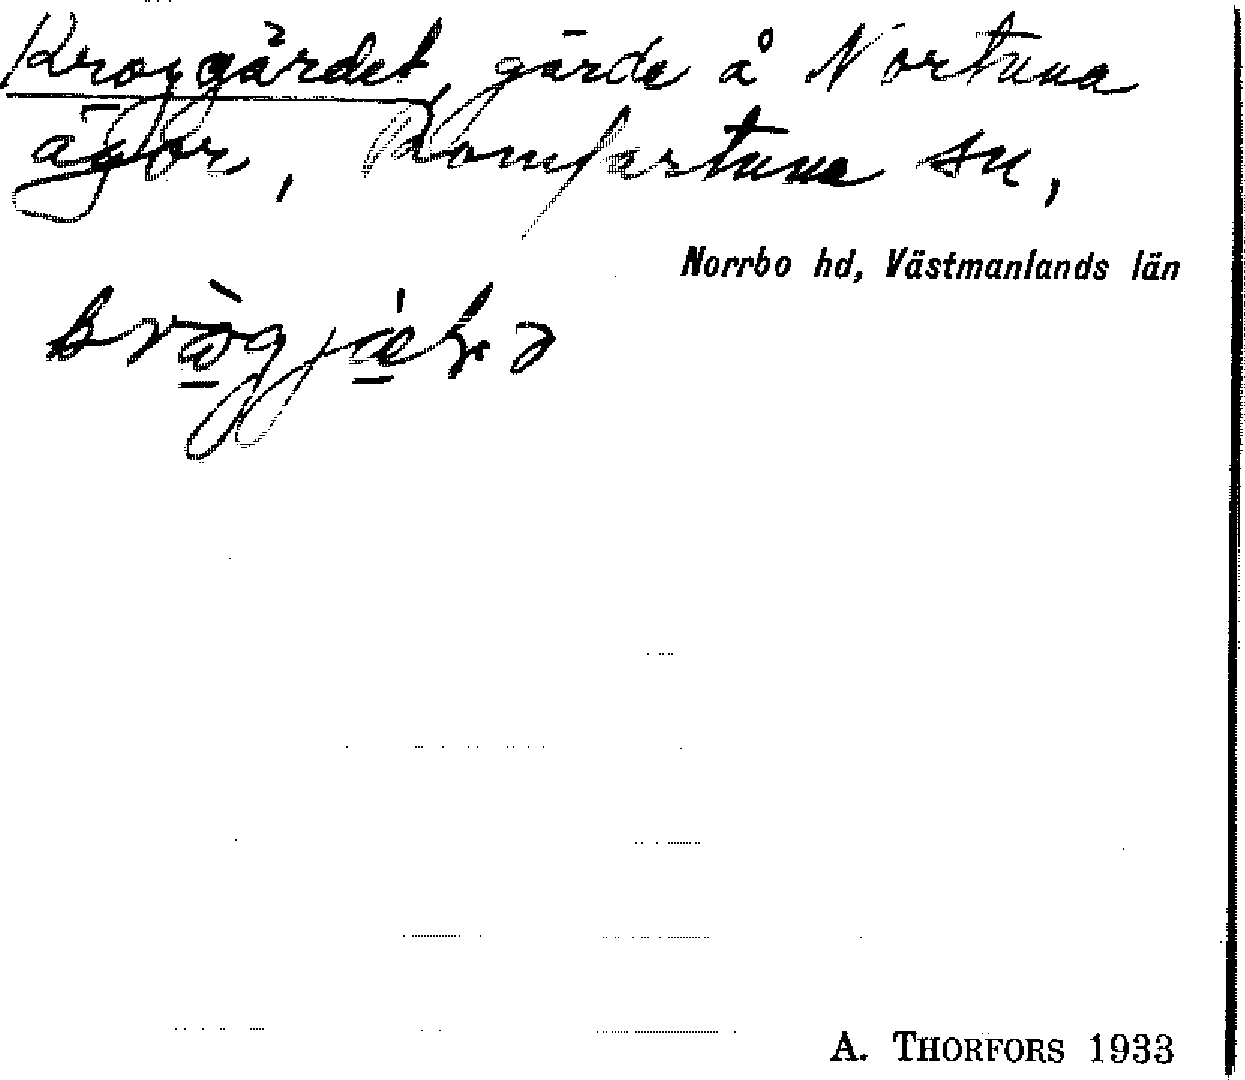 Kroggärdet, gärde å Nortuna
ägor, Romfartuna sn,
Norrbo hd, Västmanlands län
A. THORFORS 1933